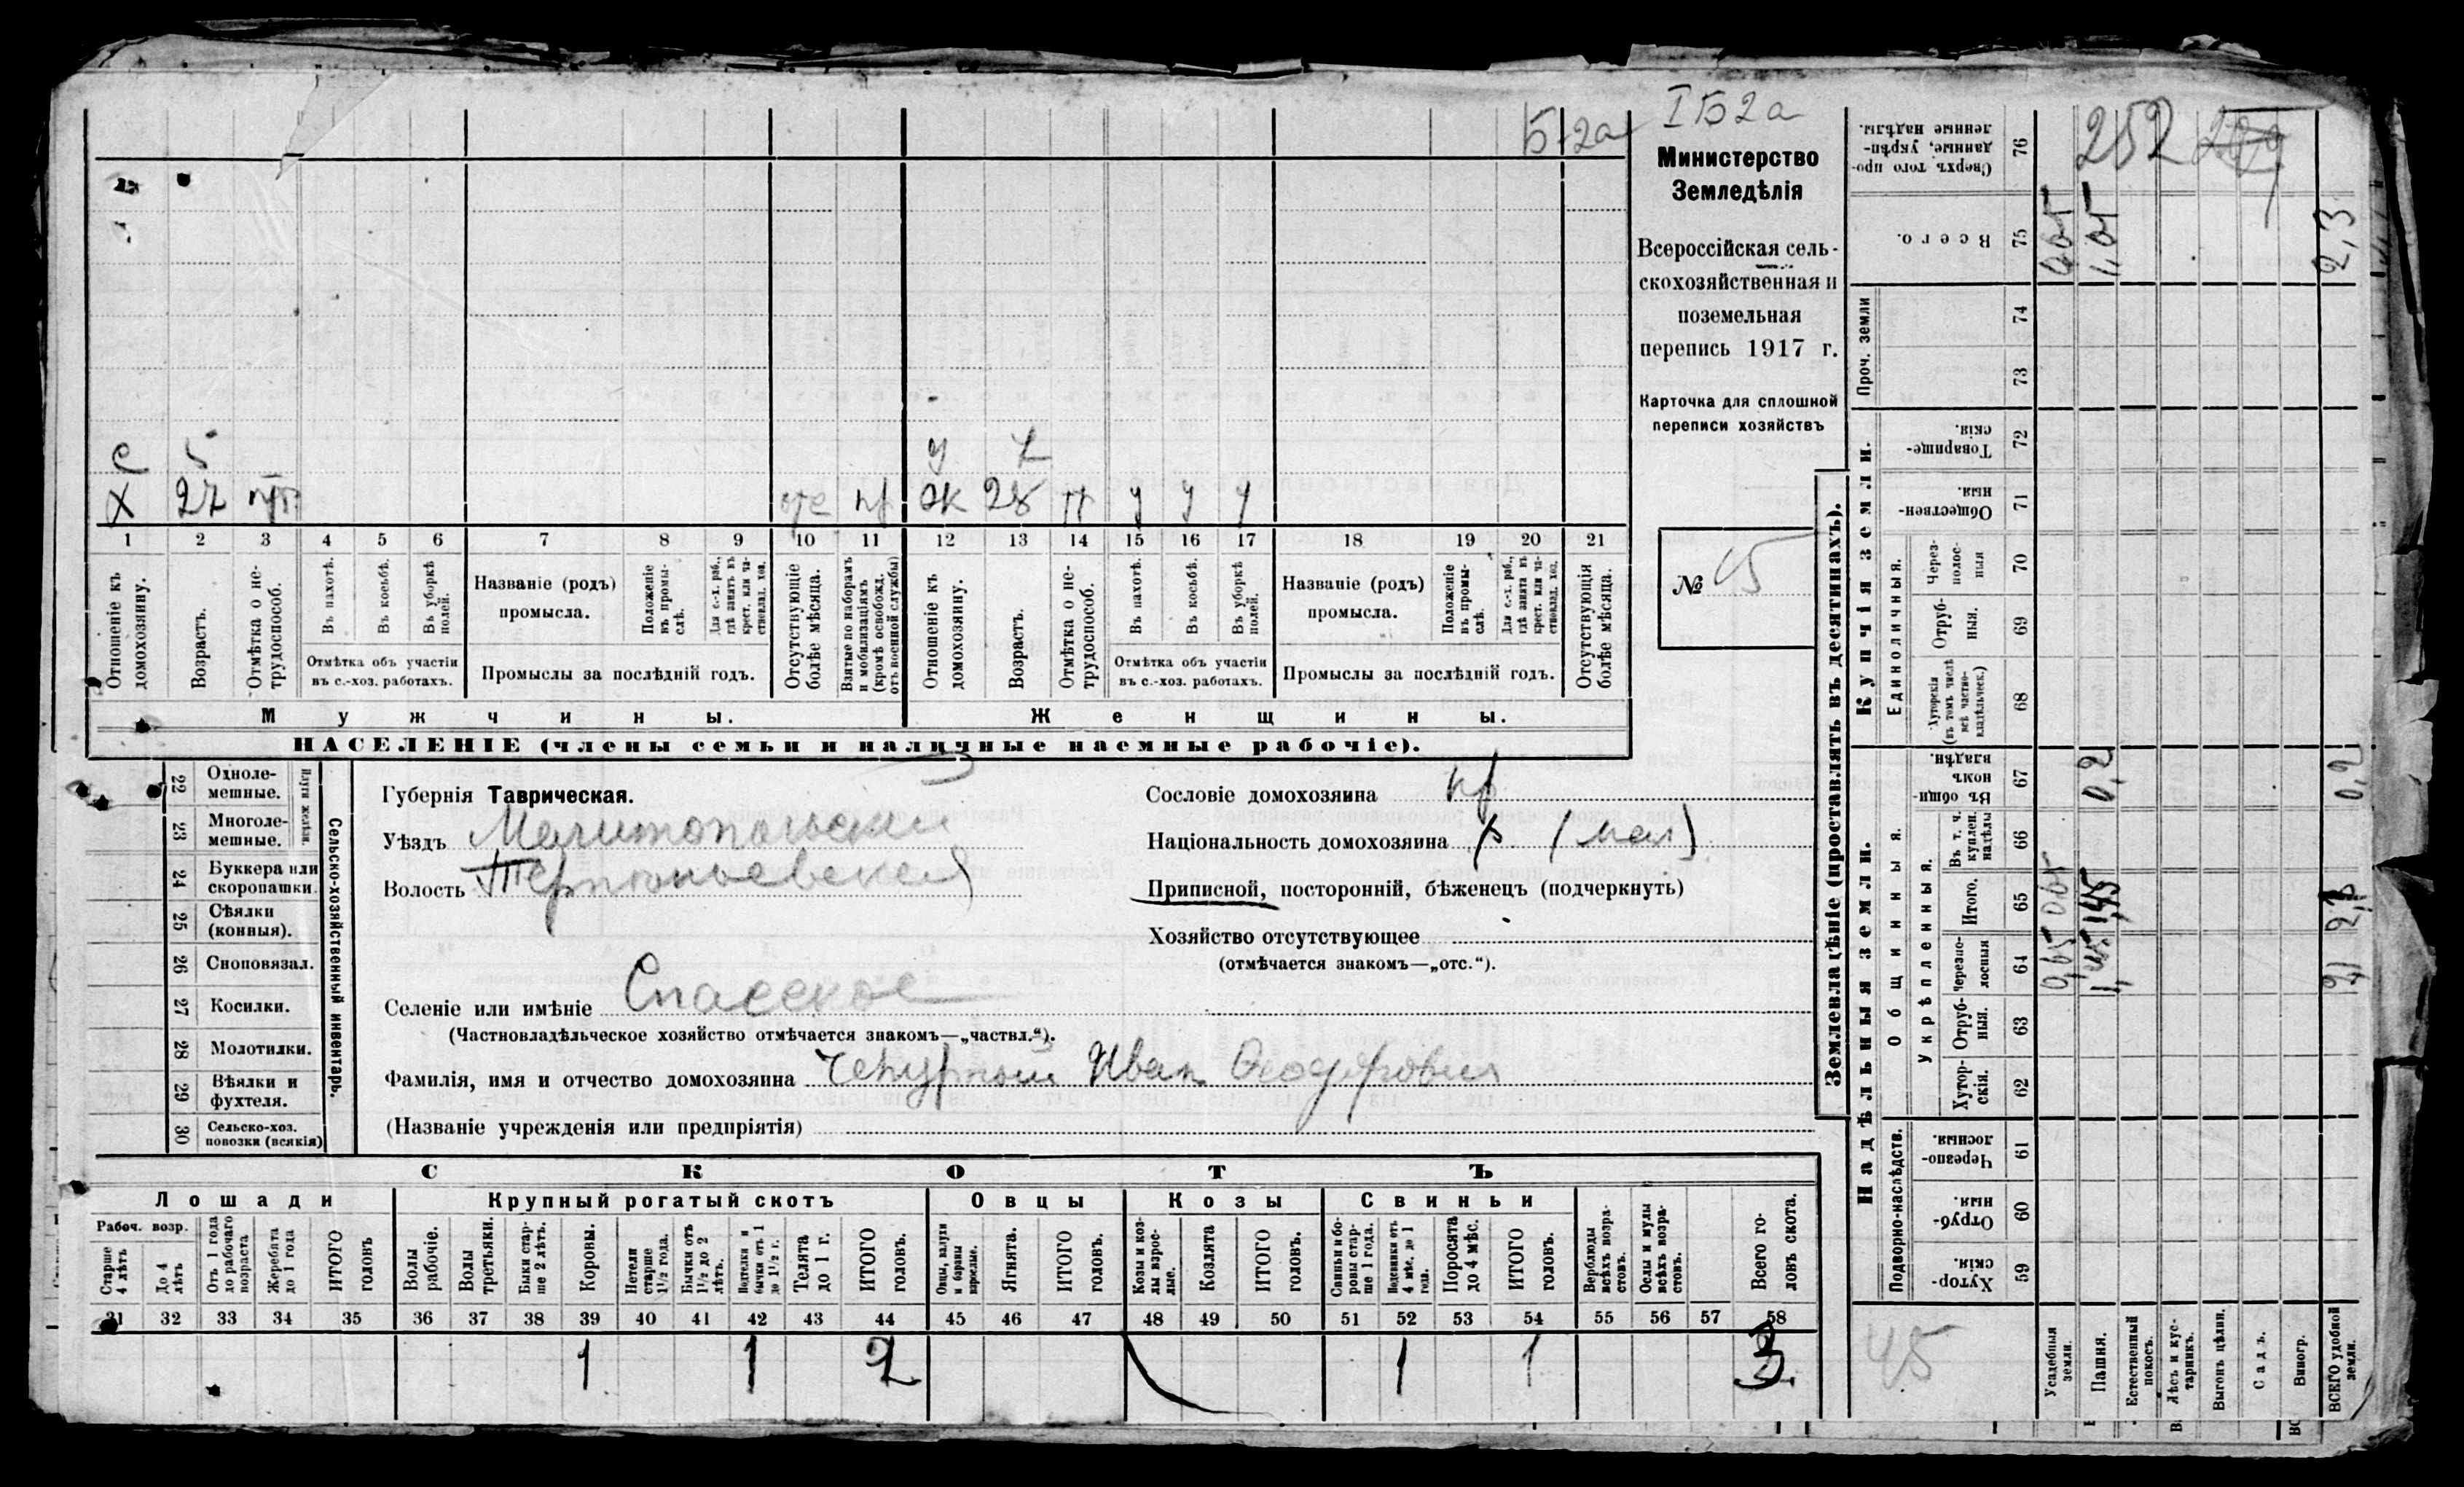 Б-2а
І Б 2а
Министерство
Земледѣлія
Всероссійская сель-
скохозяйственная и
поземельная
перепись 1917 г.
Карточка для сплошной
переписи хозяйствъ
№ 45
с 5 у 7
х 27 отс ж 28 у у у
1 2 3 4 5 6 7 8 9 10 11 12 13 14 15 16 17 18 19 20 21
Отношеніе къ домохозяину.
Возрастъ.
Отмѣтка о не-трудоспособ.
Въ пахотѣ.
Въ косьбѣ.
Въ уборкѣ полей.
Отмѣтка объ участіи въ с.-хоз. работахъ.
Названіе (родъ) промысла.
Положеніе въ промы-слѣ.
Для с.-х. раб., гдѣ занятъ въ крест. или ча-стновлад. хоз.
Промыслы за послѣдній годъ.
Отсутствующіе болѣе мѣсяца.
Взятые по наборамъ и мобилизаціямъ (кромѣ освобожд. отъ военной службы)
Отношеніе къ домохозяину.
Возрастъ.
Отмѣтка о не-трудоспособ.
Въ пахотѣ.
Въ косьбѣ.
Въ уборкѣ полей.
Отмѣтка объ участіи въ с.-хоз. работахъ.
Названіе (родъ) промысла.
Положеніе въ промы-слѣ.
Для с.-х. раб., гдѣ занята въ крест. или ча-стновлад. хоз.
Промыслы за послѣдній годъ.
Отсутствующія болѣе мѣсяца.
Мужчины.
Женщины.
НАСЕЛЕНІЕ (члены семьи и наличные наемные рабочіе).
Сельско-хозяйственный инвентарь.
Плуги желѣзн.
22 Одноле-мешные.
23 Многоле-мешные.
24 Буккера или скоропашки.
25 Сѣялки (конныя).
26 Сноповязал.
27 Косилки.
28 Молотилки.
29 Вѣялки и фухтеля.
30 Сельско-хоз. повозки (всякія)
Губернія Таврическая.
Уѣздъ Мелитопольский
Волость
Селеніе или имѣніе Спасское
(Частновладѣльческое хозяйство отмѣчается знакомъ—„частвл.“).
Фамилія, имя и отчество домохозяина Чепурной Иван Феодорович
(Названіе учрежденія или предпріятія)
Сословіе домохозяина кр
Національность домохозяина р (мал)
Приписной, посторонній, бѣженецъ (подчеркнуть)
Хозяйство отсутствующее
(отмѣчается знакомъ—„отс.“).
СКОТЪ
Лошади
Крупный рогатый скотъ
Овцы
Козы
Свиньи
Рабоч. возр.
Старше 4 лѣтъ
До 4 лѣтъ
Отъ 1 года до рабочаго возраста
Жеребята до 1 года
ИТОГО головъ
Волы рабочіе.
Волы третьяки.
Быки стар-ше 2 лѣтъ.
Коровы.
Нетели старше 1½ года.
Бычки отъ 1½ до 2 лѣтъ.
Подтелки и бычки отъ 1 до 1½ г.
Телята до 1 г.
ИТОГО головъ.
Овцы, валухи и бараны взрослые.
Ягнята.
ИТОГО головъ.
Козы и коз-лы взрос-лые.
Козлята
ИТОГО головъ.
Свиньи и бо-ровы стар-ше 1 года.
Подсвинки отъ 4 мѣс. до 1 года.
Поросята до 4 мѣс.
ИТОГО головъ.
Верблюды всѣхъ возра-стовъ.
Ослы и мулы всѣхъ возра-стовъ.
Всего го-ловъ скота.
31 32 33 34 35 36 37 38 39 40 41 42 43 44 45 46 47 48 49 50 51 52 53 54 55 56 57 58
1 1 2 1 1 3
Землевладѣніе (проставлять въ десятинахъ).
Надѣльныя земли.
Купчія земли.
Проч. земли
Подворно-наслѣдств.
Общинныя.
Укрѣпленныя.
Единоличныя.
59 Хутор-скія.
60 Отруб-ныя.
61 Черезпо-лосныя.
62 Хутор-скія.
63 Отруб-ныя.
64 Черезпо-лосныя
65 Итого.
66 Въ т. ч. куплен. надѣлы
67 Въ общи-номъ владѣн.
68 Хуторскія (въ томъ числѣ всѣ частно-владѣльческ.)
69 Отруб-ныя.
70 Через-полос-ныя
71 Обществен-ныя.
72 Товарище-скія.
73
74
75 Всего.
76 Сверхъ того про-данные, укрѣп-ленные надѣлы.
252
45
Усадебныя земли.
Пашня. 0,2
Естественный покосъ.
Лѣсъ и кус-тарникъ.
Выгонъ цѣлин.
Садъ.
Виногр.
ВСЕГО удобной земли. 0,2 2,3